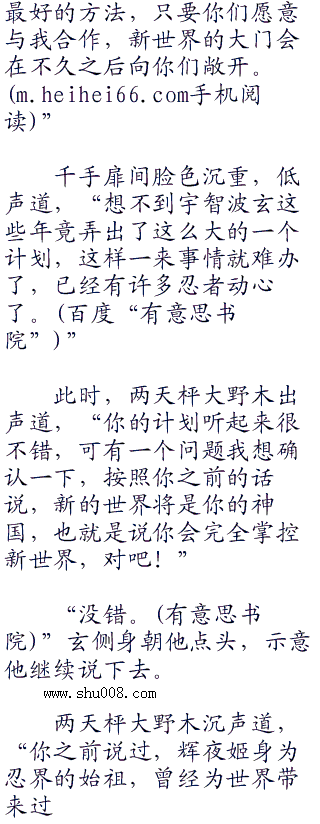 最好的方法，只要你们愿意
与我合作，新世界的大门会
在不久之后向你们敞开。
(m.heihei66.com手机阅
读)”
千手扉间脸色沉重，低
声道，“想不到宇智波玄这
些年竟弄出了这么大的一个
计划，这样一来事情就难办
了，已经有许多忍者动心
了。(百度“有意思书
院”)”
此时，两天枰大野木出
声道，“你的计划听起来很
不错，可有一个问题我想确
认一下，按照你之前的话
说，新的世界将是你的神
国，也就是说你会完全掌控
新世界，对吧！”
“没错。(有意思书
院)”玄侧身朝他点头，示意
他继续说下去。
www.shu008.com
两天枰大野木沉声道，
“你之前说过，辉夜姬身为
忍界的始祖，曾经为世界带
来过